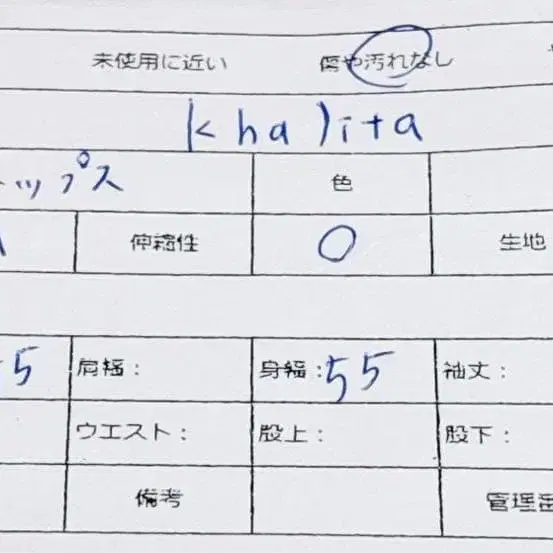 未使用に近い 傷や汚れなし
khalita
トップス 色
伸縮性 ○ 生地
5 肩幅: 身幅:55 袖丈:
ウエスト: 股上: 股下:
備考 管理番